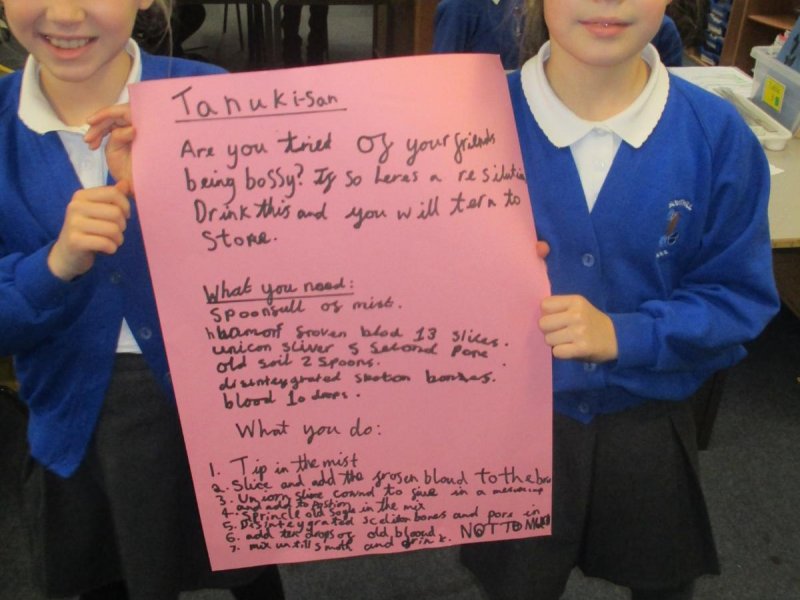 Tanuki-San
Are you tried of your friends
being bossy? If so heres a resilution
Drink this and you will tern to
Stone.
What you need:
spoonfull of mist.
froven blod 13 slices.
unicon sliver 5 second pore
old soil 2 spoons.
disinteygrated skeition bones.
blood 10 drops.
What you do:
1. Tip in the mist
2. Slice and add the frosen bloud to the bru
3. Unicorn slime cownd to five in a
4. and add to
Sprincle old in the mix
5. Disinteygrated scelition bones and pore in
6. add ten drops of old bloud
7. mix untill smoth and drink. NOT TO MUCH